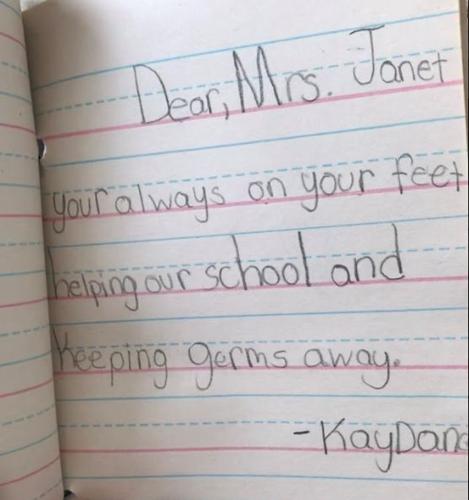 Dear, Mrs. Janet
your always on your feet
helping our school and
keeping germs away.
- KayDan